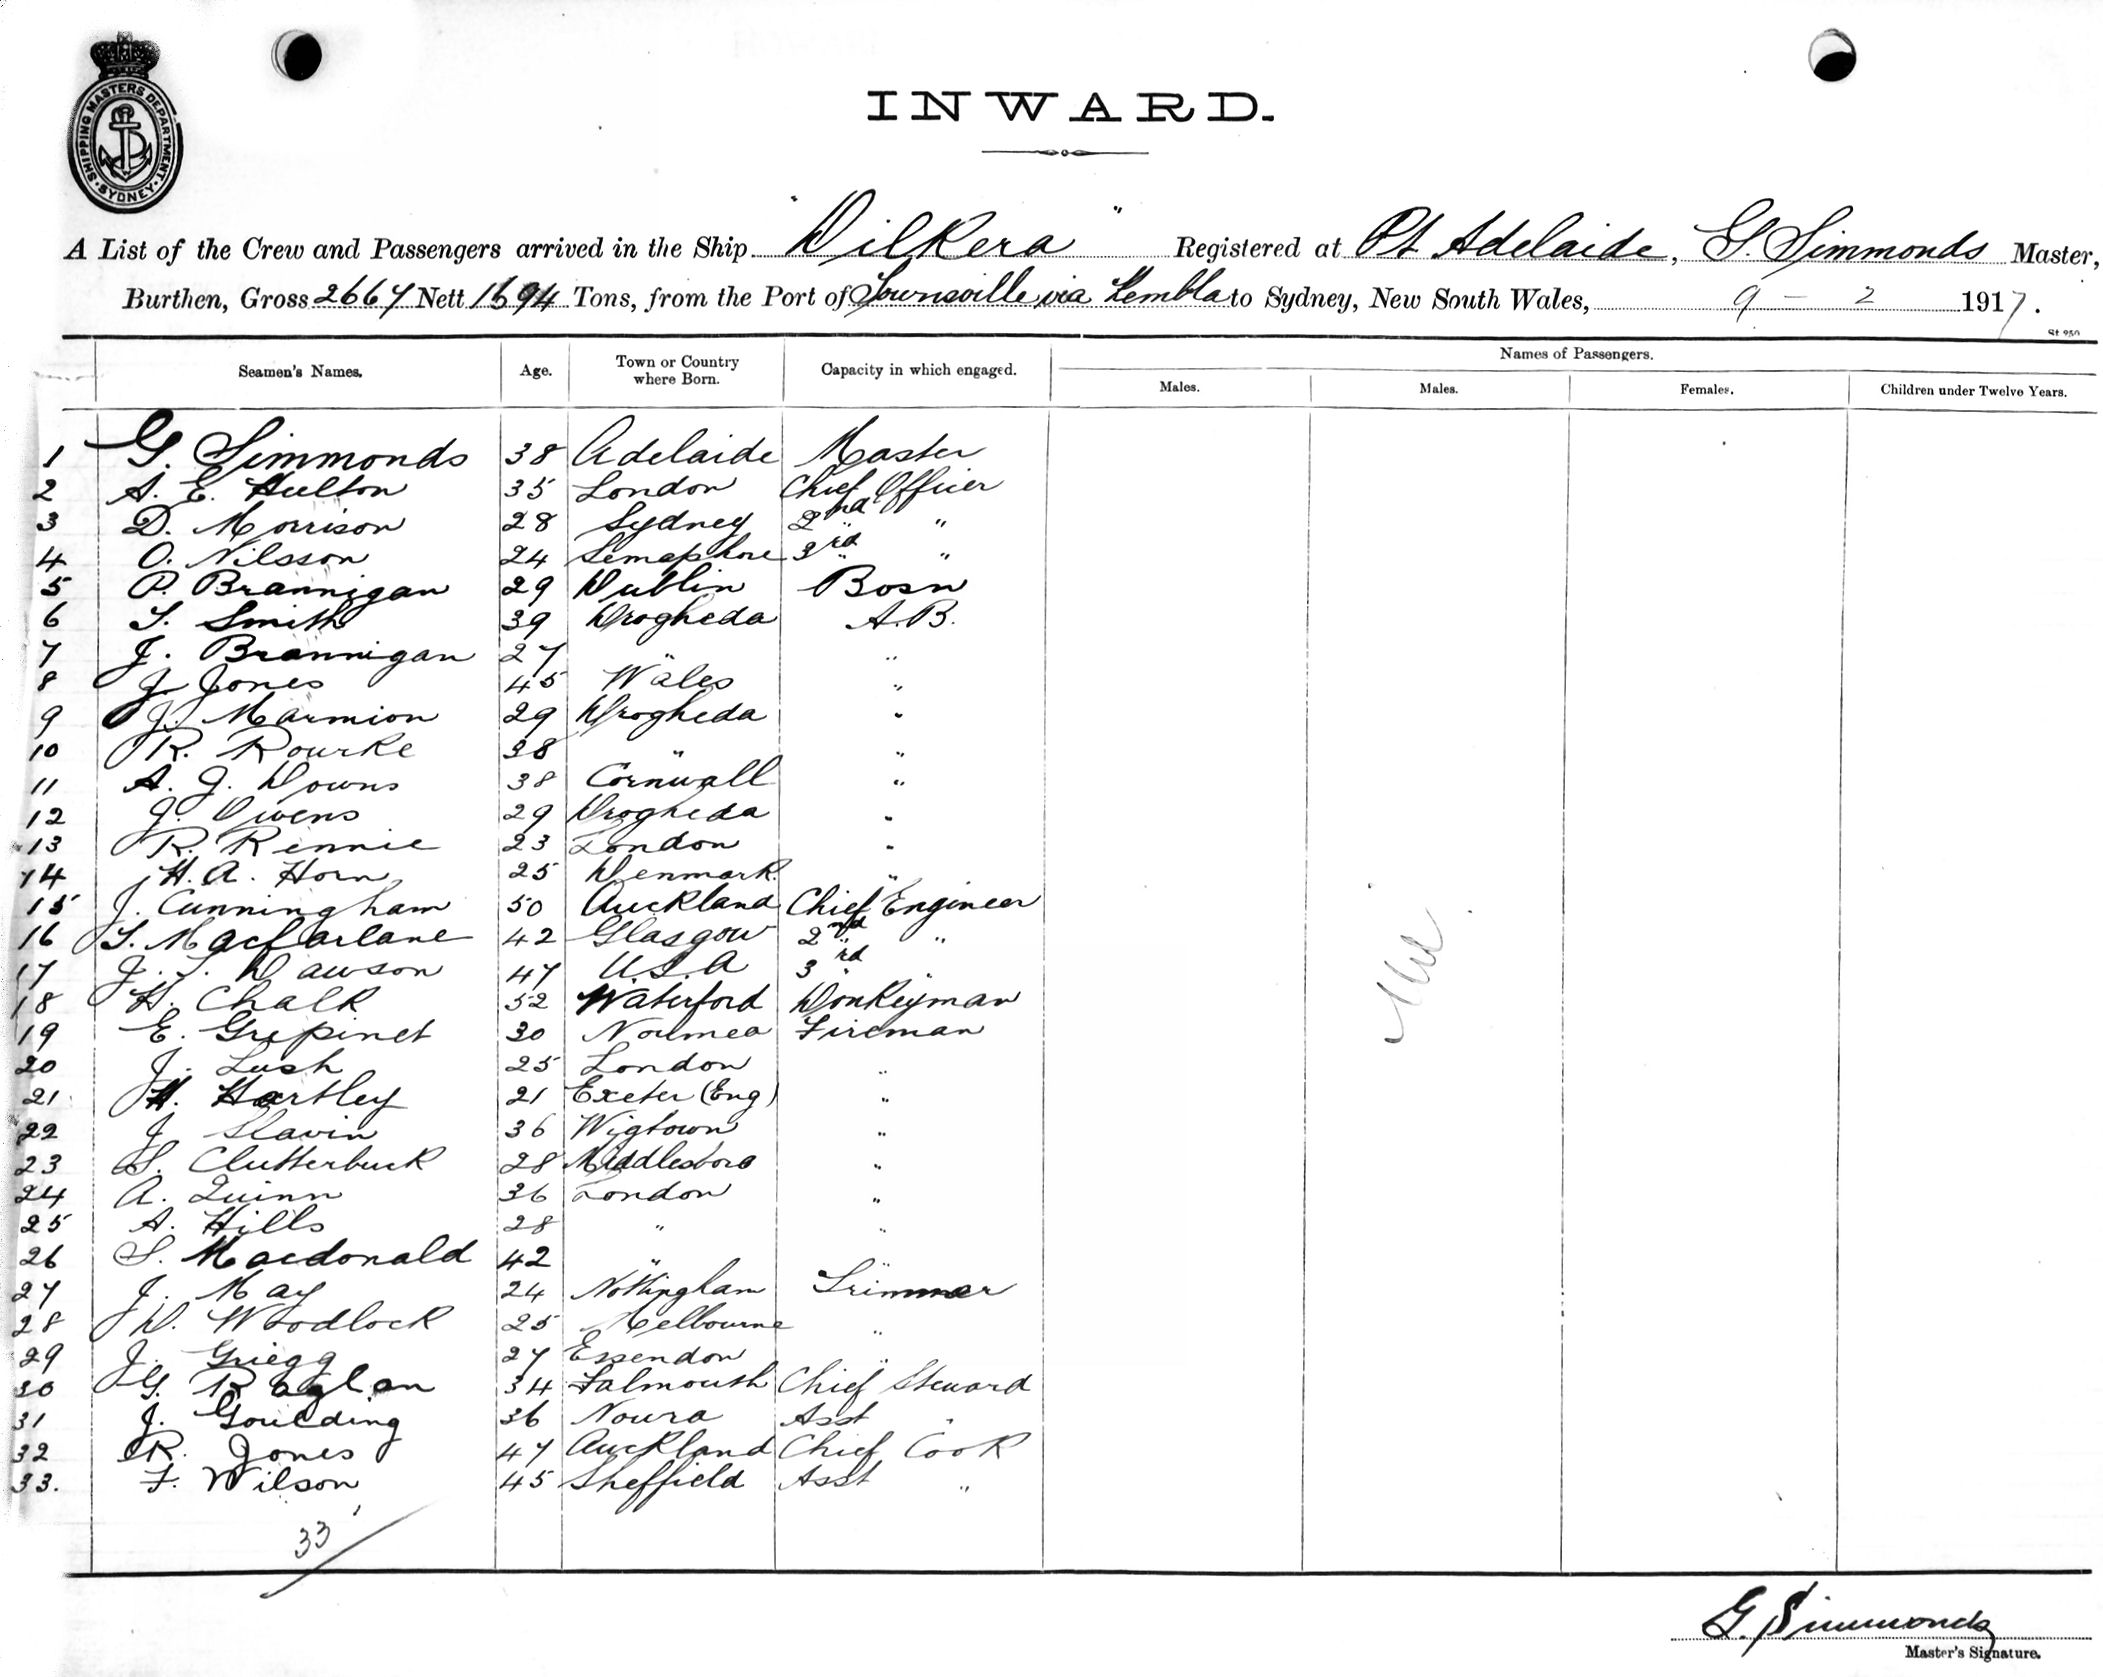 SHIPPING MASTERS DEPARTMENT. SYDNEY.
INWARD.
A List of the Crew and Passengers arrived in the Ship "Dilkera" Registered at Pt Adelaide, G. Simmonds Master,
Burthen, Gross 2667 Nett 1694 Tons, from the Port of Townsville via Kembla to Sydney, New South Wales, 9 - 2 1917.
St 250
Names of Passengers.
Seamen's Names. Age. Town or Country where Born. Capacity in which engaged. Males. Males. Females. Children under Twelve Years.
1 G. Simmonds 38 Adelaide Master
2 A. E. Hulton 35 London Chief Officer
3 D. Morrison 28 Sydney 2nd "
4 O. Nilsson 24 Semaphore 3rd "
5 P. Brannigan 29 Dublin Bosn
6 T. Smith 39 Drogheda A.B.
7 J. Brannigan 27 " "
8 J. Jones 45 Wales "
9 J. Marmion 29 Drogheda "
10 R. Rourke 38 " "
11 A. J. Downs 38 Cornwall "
12 J. Owens 29 Drogheda "
13 R. Rennie 23 London "
14 H. A. Horn 25 Denmark "
15 J. Cunningham 50 Auckland Chief Engineer
16 T. Macfarlane 42 Glasgow 2nd "
17 J. T. Dawson 47 U.S.A 3rd "
18 H. Chalk 52 Waterford Donkeyman
19 E. Grepinet 30 Noumea Fireman
20 J. Lush 25 London "
21 H. Hartley 21 Exeter (Eng) "
22 J. Slavin 36 Wigtown "
23 S. Clutterbuck 28 Middlesboro "
24 A. Quinn 36 London "
25 A. Hills 28 " "
26 S. Macdonald 42 " "
27 J. May 24 Nottingham Trimmer
28 D. Woodlock 25 Melbourne "
29 J. Griegg 27 Essendon "
30 G. Raglan 34 Falmouth Chief Steward
31 J. Goulding 36 Noura Asst "
32 R. Jones 47 Auckland Chief Cook
33. F. Wilson 45 Sheffield Asst "
Nil
33
G. Simmonds
Master's Signature.